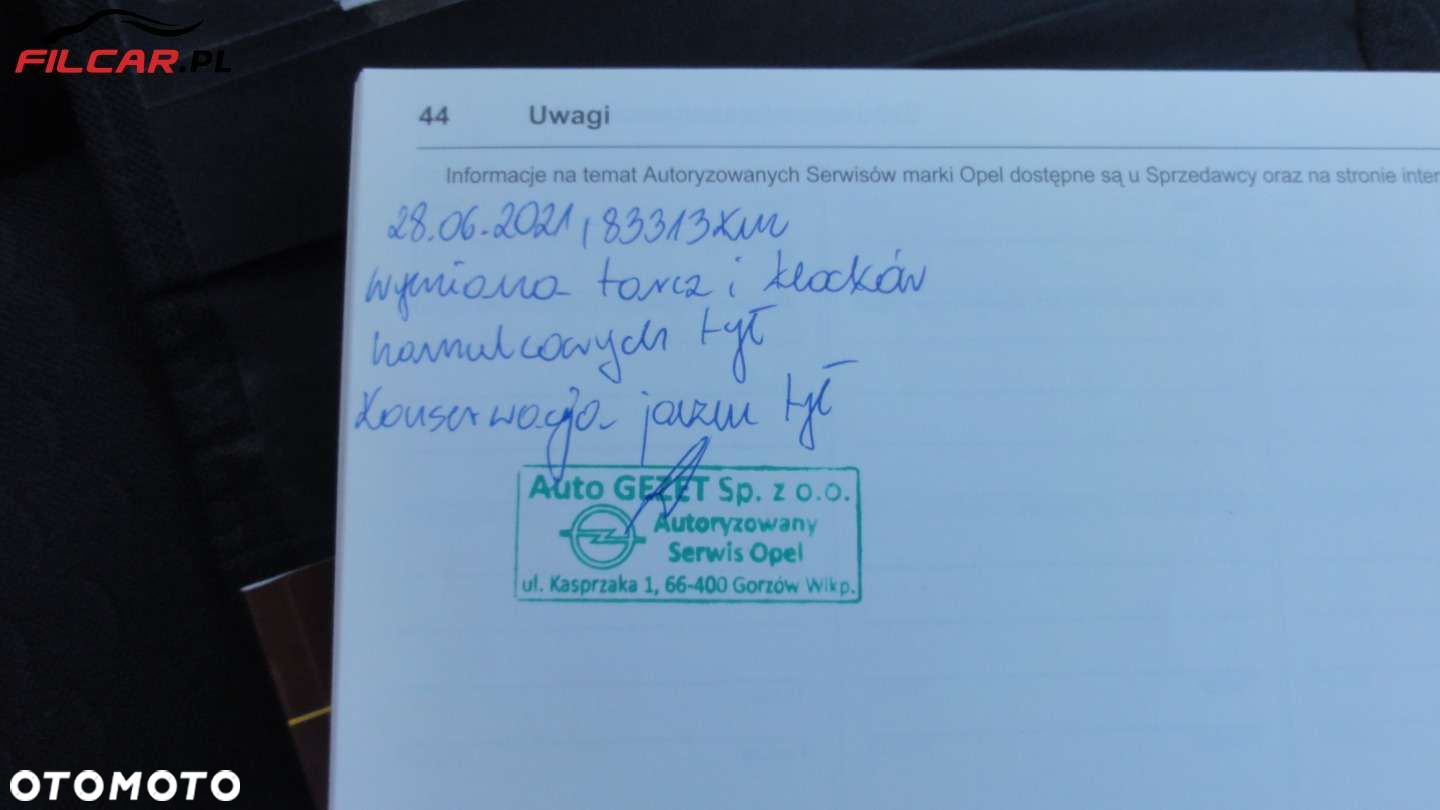 FILCAR.PL
44 Uwagi
Informacje na temat Autoryzowanych Serwisów marki Opel dostępne są u Sprzedawcy oraz na stronie inter
28.06.2021, 83313km
wymiana tarcz i klocków
hamulcowych tył
Konserwacja jarzm tył
Auto GEZET Sp. z o.o.
Autoryzowany
Serwis Opel
ul. Kasprzaka 1, 66-400 Gorzów Wlkp.
OTOMOTO